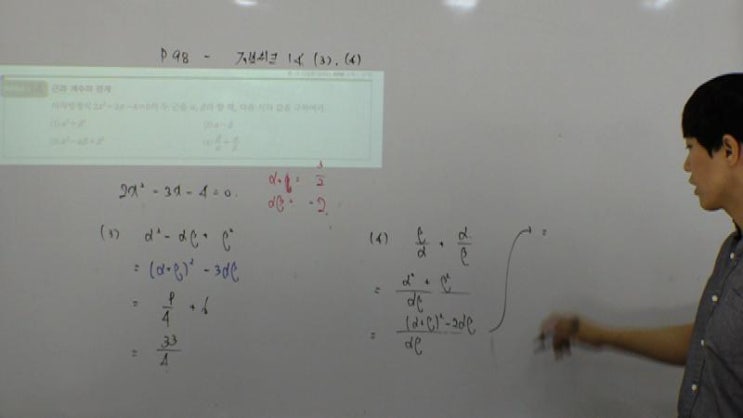 P 98 - 개념체크 14 (3), (4)
근과 계수의 관계
이차방정식 2x² - 3x - 4 = 0의 두 근을 α, β라 할 때, 다음 식의 값을 구하여라.
(1) α² + β² (2) α - β
(3) α² - αβ + β² (4) β/α + α/β
2x² - 3x - 4 = 0.
α+β = 3/2
αβ = -2.
(3) α² - αβ + β²
= (α+β)² - 3αβ
= 9/4 + 6
= 33/4
(4) β/α + α/β
= (α² + β²)/αβ
= ((α+β)² - 2αβ)/αβ
=